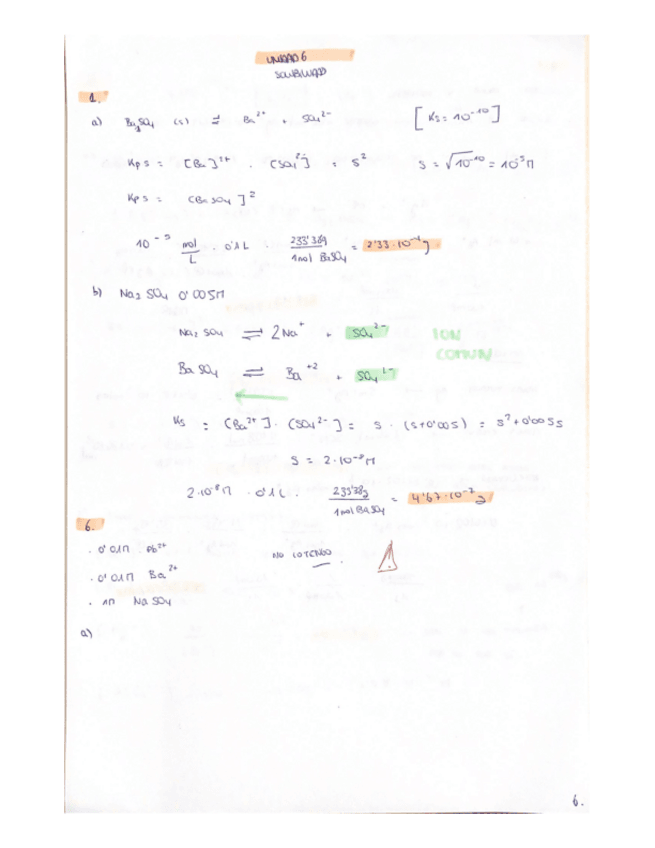 UNIDAD 6
SOLUBILIDAD
1.
a) BaSO4 (s) ⇌ Ba2+ + SO42- [Ks = 10-10]
Kps = [Ba]2+ . [SO42-] = s2 S = √10-10 = 10-5 M
Kps = [BaSO4]2
10-5 mol/L . 0'1 L . 233'38g/1 mol BaSO4 = 2'33·10-4 g
b) Na2SO4 0'005M
Na2SO4 ⇌ 2Na+ + SO42- ION
COMUN
BaSO4 ⇌ Ba+2 + SO42-
←
Ks = [Ba2+] . [SO42-] = s . (s+0'005) = s2+0'005s
S = 2·10-8 M
2·10-8 M . 0'1 L . 233'38g/1 mol BaSO4 = 4'67·10-7 g
6.
. 0'01M Pb2+ NO LO TENGO .
. 0'01M Ba2+
. 1M NaSO4
a)
6.